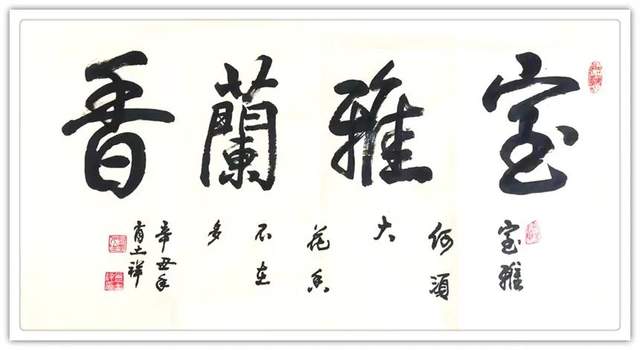 室雅蘭香
室雅
何須
大
花香
不在
多
辛丑年